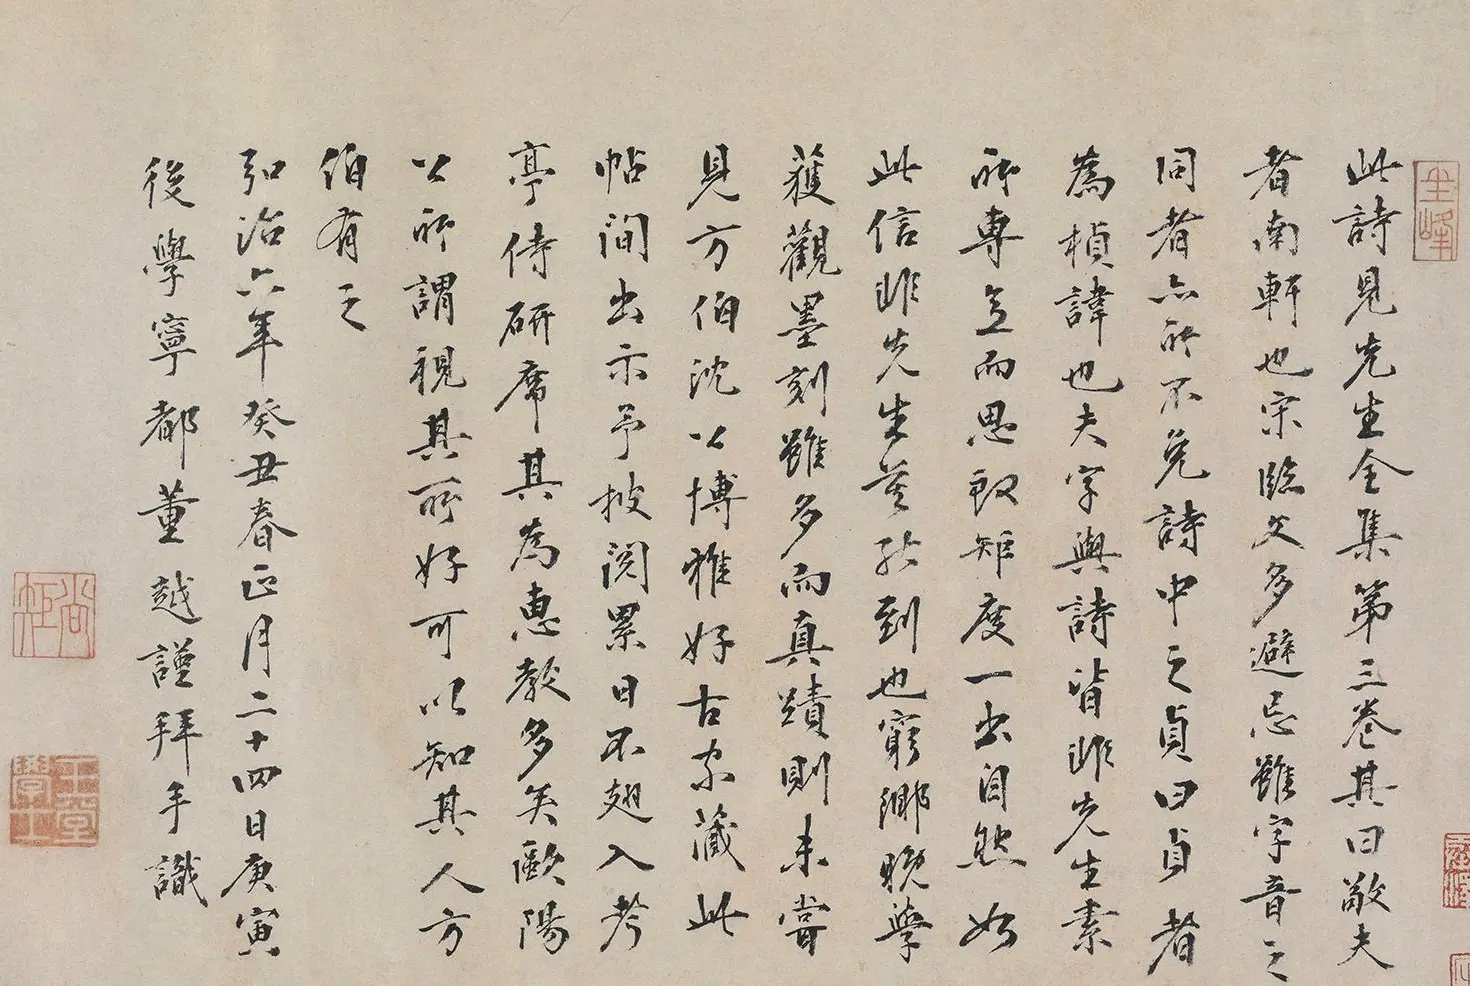 此詩見先生全集第三卷其曰敬夫
者南軒也宋臨文多避忌雖字音之
同者亦所不免詩中之貞曰貞者
為楨諱也夫字與詩皆非先生素
所專立而思致矩度一出自然如
此信非先生莫能到也窮鄉晚學
獲觀墨刻雖多而真蹟則未嘗
見方伯沈公博雅好古家藏此
帖間出示予披閱累日不翅入考
亭侍研席其為惠教多矣歐陽
公所謂視其所好可以知其人方
伯有之
弘治六年癸丑春正月二十四日庚寅
後學寧都董越謹拜手識
圭峰
玉堂學士